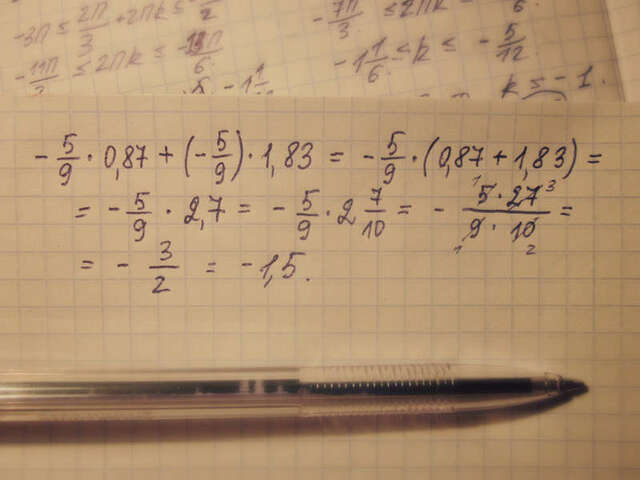 -3π ≤ 2π/3 + 2πk ≤
≤ 2πk ≤
-1 1/6 ≤ k ≤ - 5/12
k ≤ -1.
- 5/9 · 0,87 + (- 5/9) · 1,83 = - 5/9 · (0,87 + 1,83) =
= - 5/9 · 2,7 = - 5/9 · 2 7/10 = - 5 · 27/9 · 10 =
= - 3/2 = -1,5.